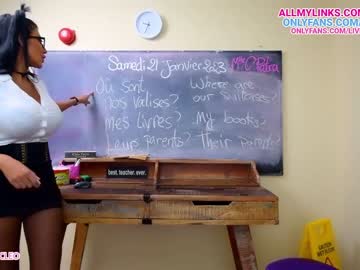 ALLMYLINKS.COM/
ONLYFANS.COM/
ONLYFANS.COM/LIV
Samedi 21 Janvier 2023
Où sont
Where are
nos valises?
our suitcases?
Mes livres?
My books?
Leurs parents?
Their parents?
best. teacher. ever.
CLEO